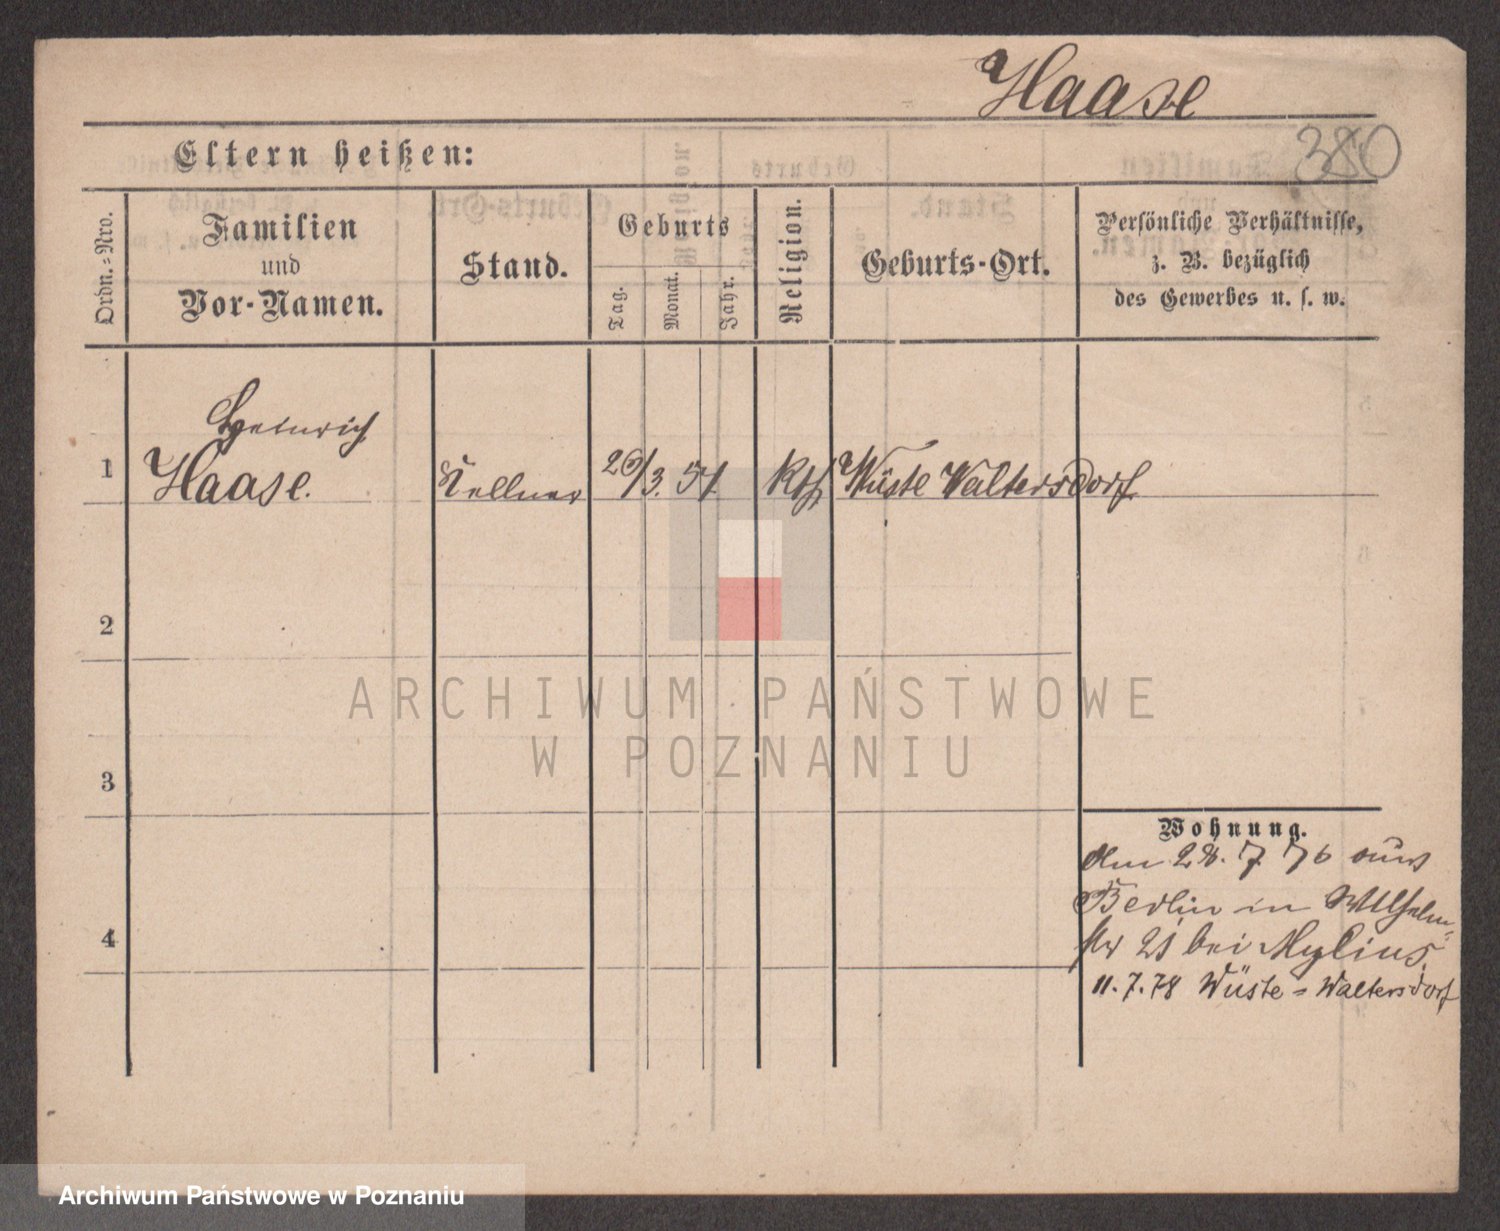 Haase
380
Eltern heißen:
Ordn.=Nro.
Familien
und
Vor-Namen.
Stand.
Geburts
Tag.
Monat.
Jahr.
Religion.
Geburts-Ort.
Persönliche Verhältnisse,
z. B. bezüglich
des Gewerbes u. s. w.
Heinrich
1 Haase. Kellner 26/3. 54 Kth Wüste Waltersdorf
2
3
4
Wohnung.
Am 28. 7. 76 aus
Berlin in Wilhelm-
str 21 bei Mylius.
11. 7. 78 Wüste-Waltersdorf
ARCHIWUM PAŃSTWOWE
W POZNANIU
Archiwum Państwowe w Poznaniu